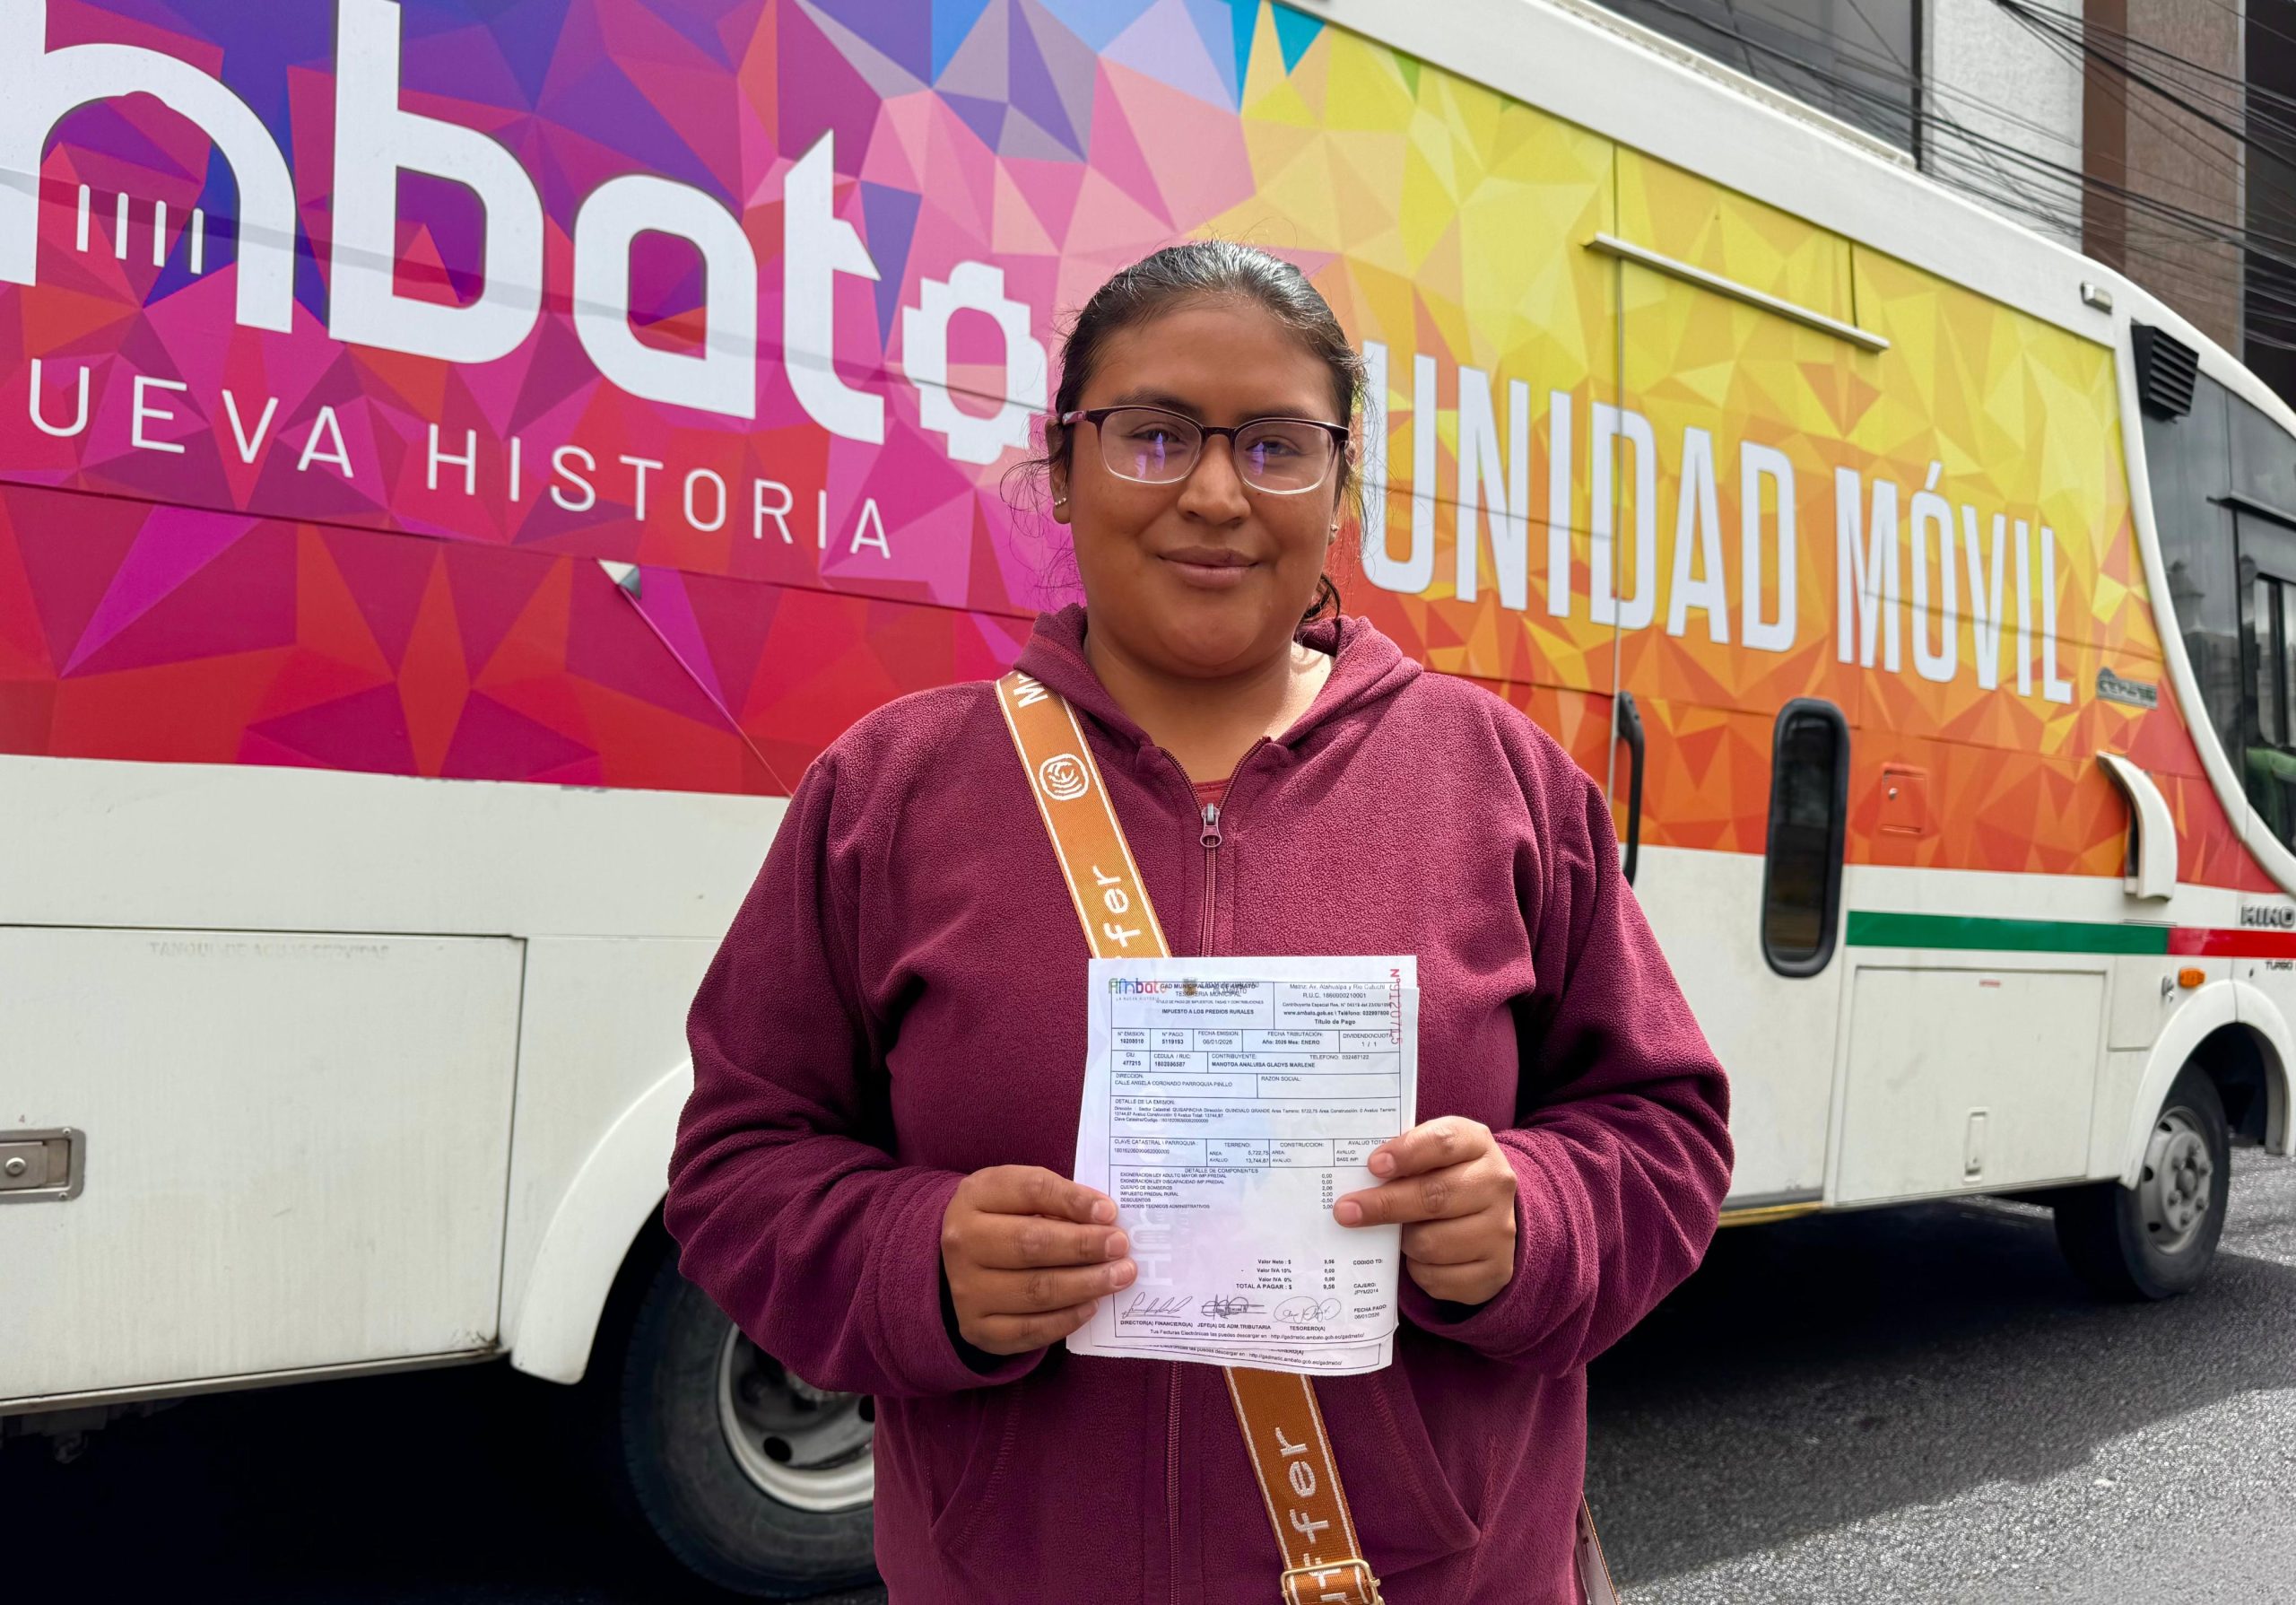 mbato
UEVA HISTORIA
UNIDAD MÓVIL
TANQUE DE AGUAS SERVIDAS
HINO
TURBO
ffer
ffer
Ambato
GAD MUNICIPALIDAD DE AMBATO
TESORERÍA MUNICIPAL
TÍTULO DE PAGO DE IMPUESTOS, TASAS Y CONTRIBUCIONES
IMPUESTO A LOS PREDIOS RURALES
Matriz: Av. Atahualpa y Río Cutuchi
R.U.C. 1860000210001
www.ambato.gob.ec | Teléfono: 032997800
Título de Pago
N° EMISION: N° PAGO FECHA EMISION: FECHA TRIBUTACION: DIVIDENDO/CUOTA
5119153 06/01/2026 Año: 2026 Mes: ENERO 1 / 1
CIU: CEDULA / RUC: CONTRIBUYENTE: TELEFONO:
477215 MANOTOA ANALUISA GLADYS MARLENE
DIRECCION: RAZON SOCIAL:
CALLE ANGELA CORONADO PARROQUIA PINLLO
DETALLE DE LA EMISION:
CLAVE CATASTRAL / PARROQUIA: TERRENO: CONSTRUCCION: AVALUO TOTAL
AREA: 5,722,75 AREA: AVALUO:
AVALUO: 13,744,87 AVALUO: BASE IMP
DETALLE DE COMPONENTES
EXONERACION LEY ADULTO MAYOR IMP.PREDIAL 0,00
EXONERACION LEY DISCAPACIDAD IMP.PREDIAL 0,00
CUERPO DE BOMBEROS
IMPUESTO PREDIAL RURAL 5,00
DESCUENTOS -0,50
SERVICIOS TECNICOS ADMINISTRATIVOS 3,00
Valor Neto : $ CODIGO TD:
Valor IVA 15% 0,00
Valor IVA 0% 0,00
TOTAL A PAGAR : $ CAJERO:
JPYM2014
FECHA PAGO:
06/01/2026
DIRECTOR(A) FINANCIERO(A) JEFE(A) DE ADM.TRIBUTARIA TESORERO(A)
Tus Facturas Electrónicas las puedes descargar en : http://gadmatic.ambato.gob.ec/gadmatic/